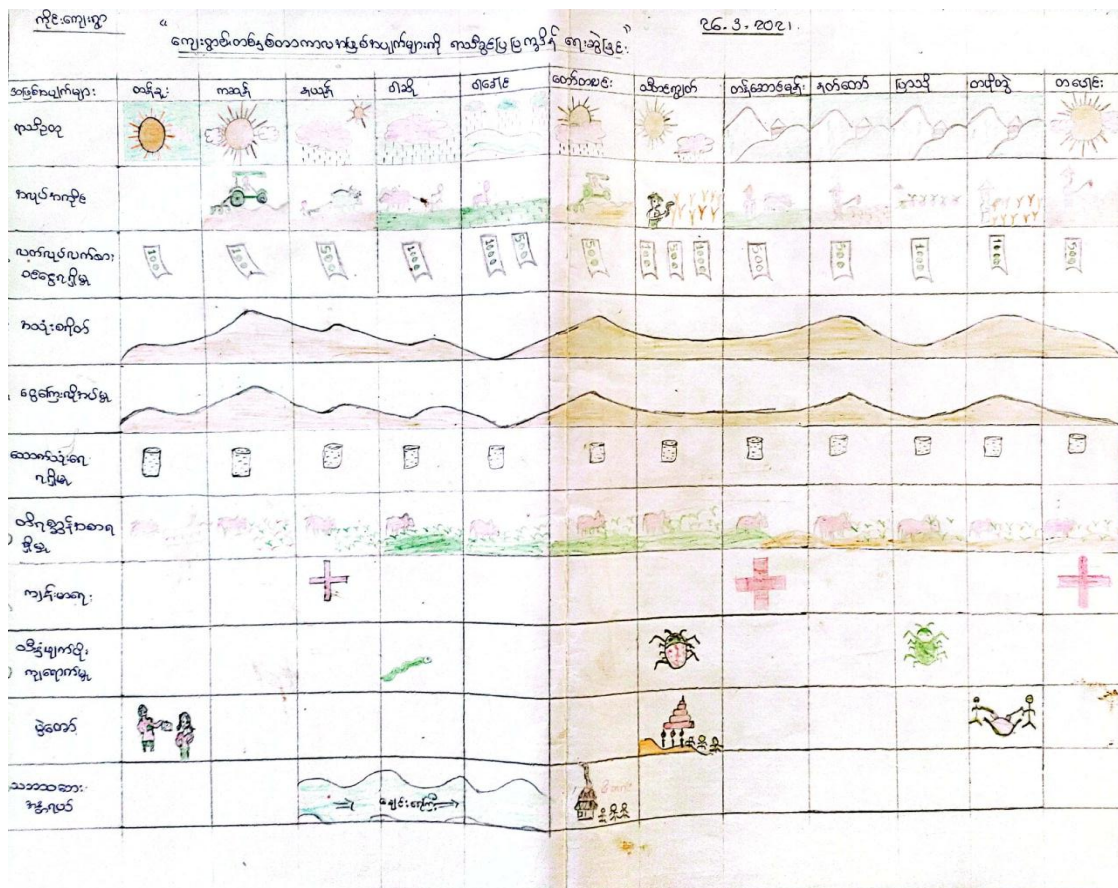 ကိုင်းကျေးရွာ
26.3.2021.
"ကျေးရွာ၏တစ်နှစ်တာကာလအဖြစ်အပျက်များကို ရာသီခွင်ပြပြက္ခဒိန် ရေးဆွဲခြင်း"
အဖြစ်အပျက်များ တန်ခူး ကဆုန် နယုန် ဝါဆို ဝါခေါင် တော်သလင်း သီတင်းကျွတ် တန်ဆောင်မုန်း နတ်တော် ပြာသို တပို့တွဲ တပေါင်း
ရာသီဥတု
အလုပ်အကိုင်
လုပ်လက်စား
ဝင်ငွေရရှိမှု
100 100 500 1000 1000 500 500 500 1000 500 500 1000 1000 500
အသုံးစရိတ်
ငွေကြေးလိုအပ်မှု
သောက်သုံးရေ
ရရှိမှု
တိရစ္ဆာန်အစာရ
ရှိမှု
ကျန်းမာရေး
သီးနှံဖျက်ပိုး
ကျရောက်မှု
ပွဲတော်
သဘာဝဘေး
အန္တရာယ်
ချောင်းရေကြီး